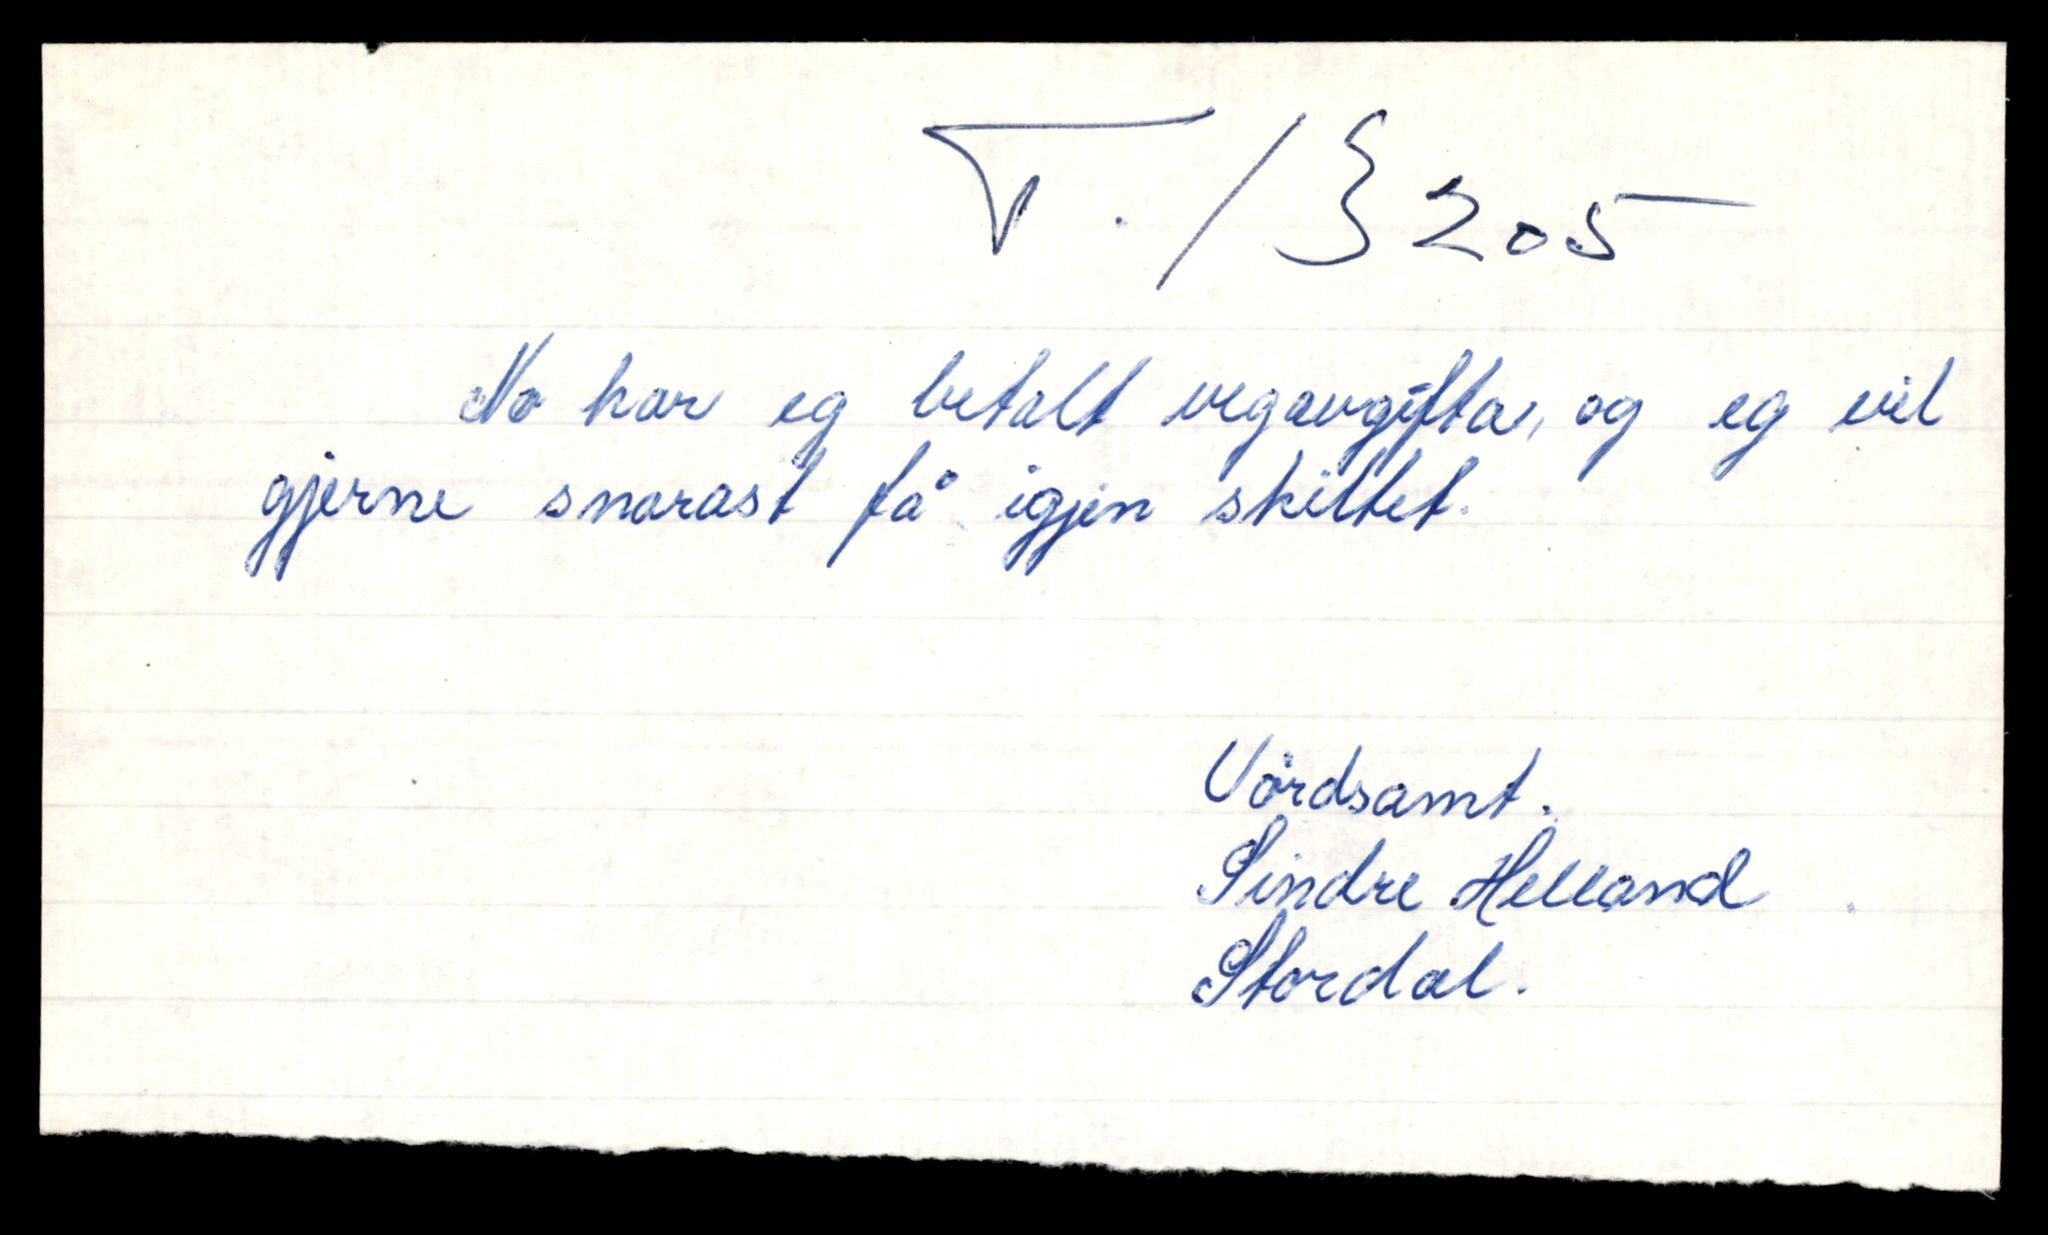 T. / 3205
No har eg betalt vegavgifta, og eg vil
gjerne snarast få igjen skiltet.
Vördsamt.
Sindre Helland
Stordal.